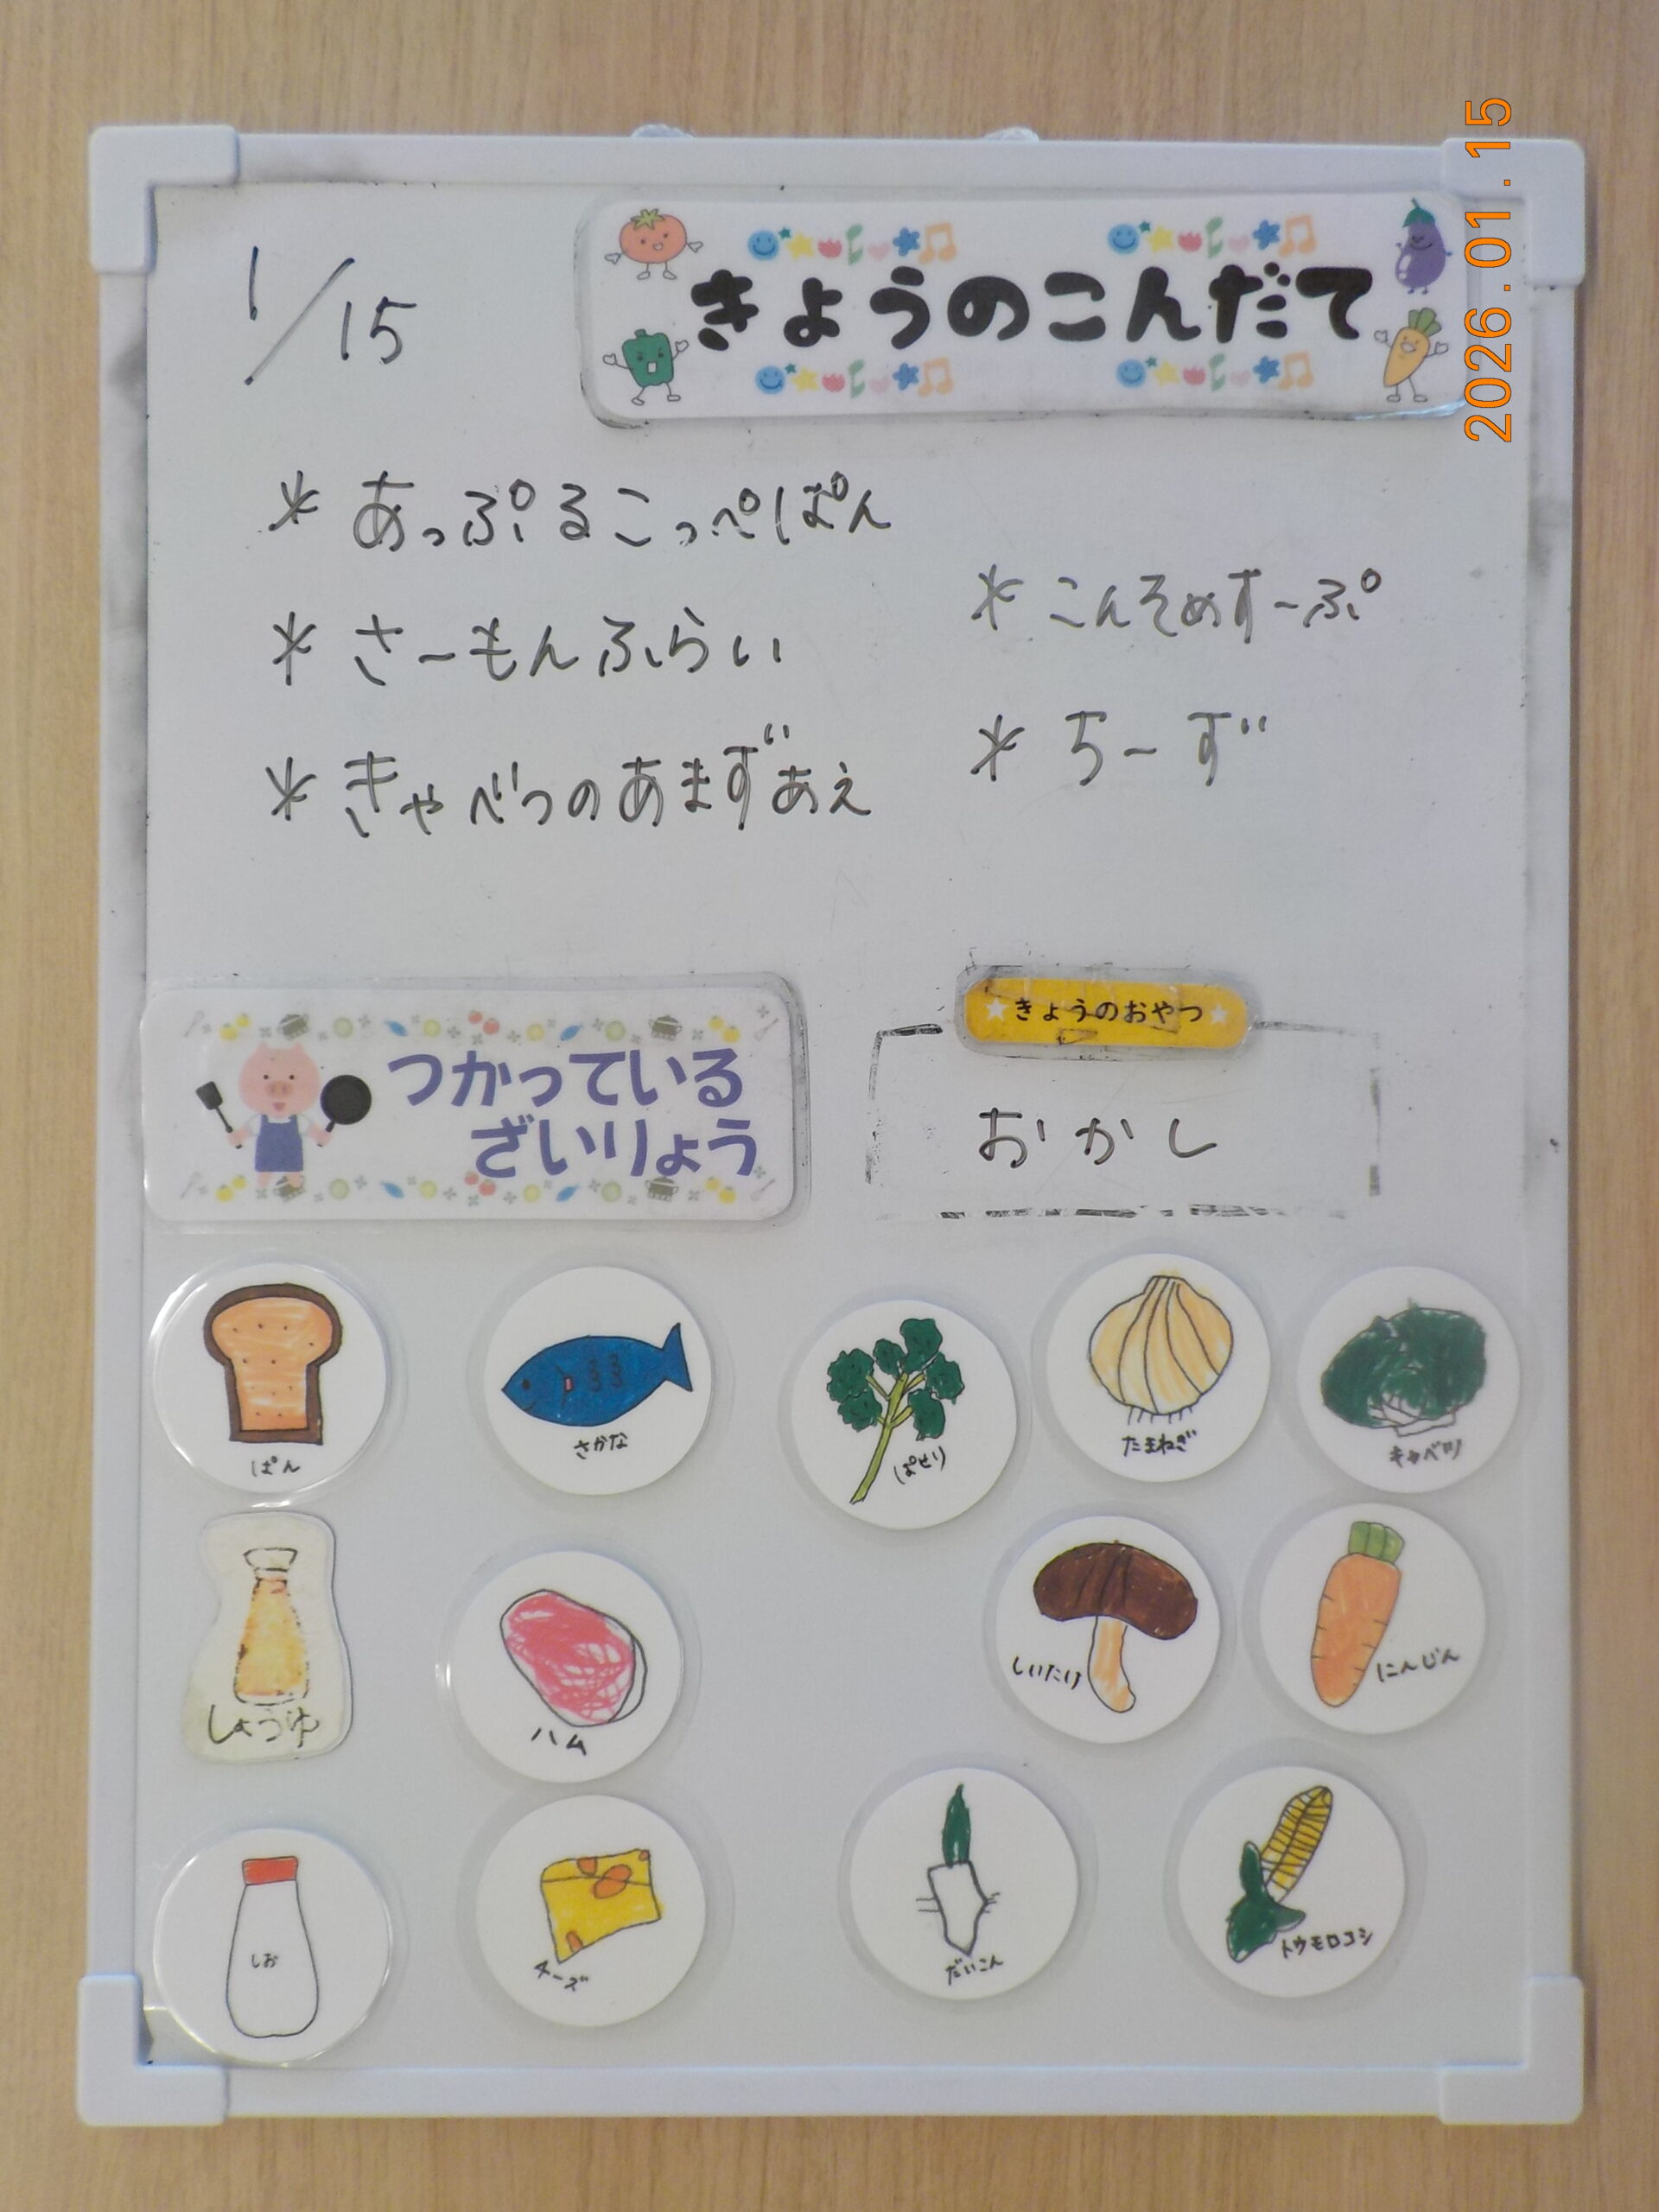 2026.01.15
1/15
きょうのこんだて
* あっぷるこっぺぱん
* さーもんふらい
* きゃべつのあまずあえ
* こんそめすーぷ
* ちーず
つかっている
ざいりょう
きょうのおやつ
おかし
ぱん
さかな
ぱせり
たまねぎ
キャベツ
しょうゆ
ハム
しいたけ
にんじん
しお
チーズ
だいこん
トウモロコシ